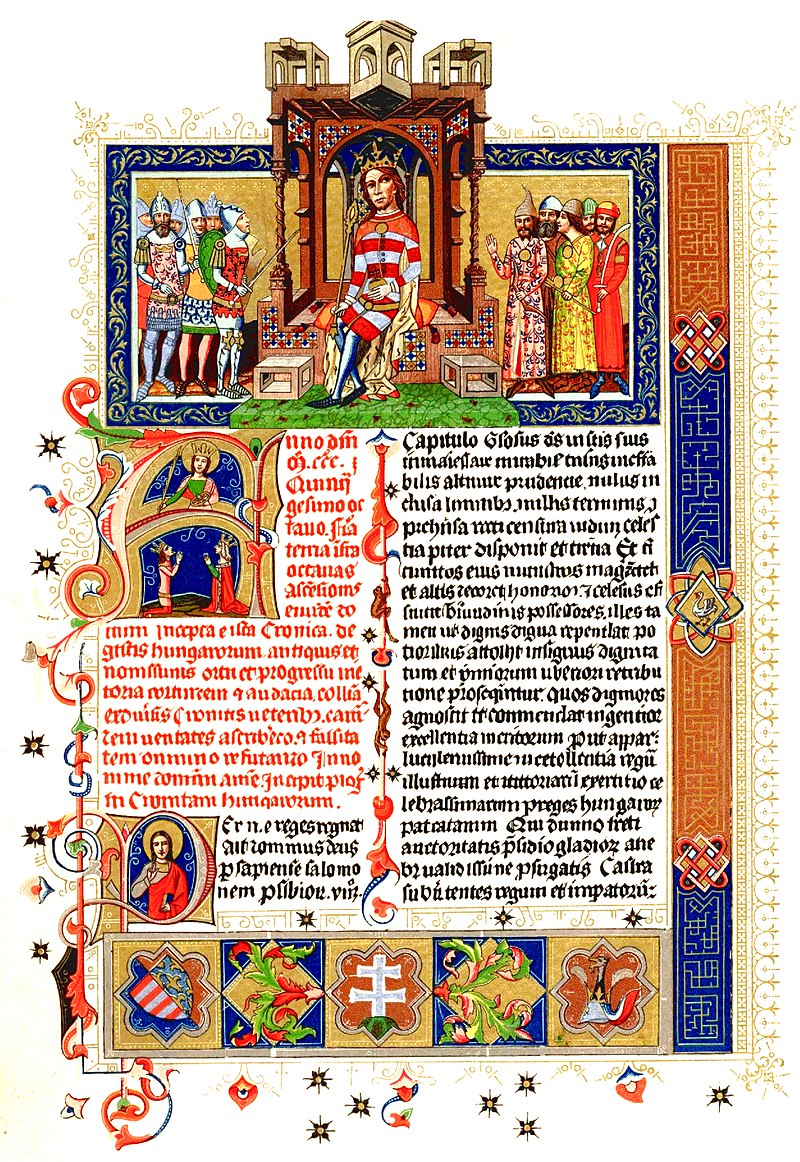 Anno dñi
m. ccc.
Quinq
gesimo oc
tauo. fia
tertia infra
octauas
ascẽsionis
eiusdẽ do
mini Incepta e ista Cronica. de
gestis hungarorum. antiquis et
nouissimis ortu et progressu
victoria eorumdem & audacia. collecta
ex diuĩsis Cronicis ueteribꝫ.
ueritates ascribẽdo. & falsita
tem omnino refutando. Inno
mine domini Amẽ. Incipit
in Cronicam hungarorum.
Per me reges regnãt
ait dominus deus
p sapientẽ salomo
nem
Capitulo Gl'osus ds in scis suis
et in maiestate mirabil' cuius ineffa
bilis altitudo prudencie. nullis in
clusa limitibꝫ. nullis terminis
pħensa recti censura iudicii celes
tia pĩter disponit et terrena Et si
cunctos eius ministros
et altis decoret honoribꝫ. & celestis effi
ciat bĩtudinis possessores. illos ta
men ut dignis digna rependat po
tioribus attollit insigniis dignita
tum et pmiorum uberiori retribu
tione prosequitur. quos digniores
agnoscit & commendat ingentior
excellentia meritorum Put appar&
luculentissime in excellentia regũ
illustrium et uictoriarũ exercitio ce
lebrassimarum p reges hungarie
patratarum Qui diuino freti
auctoritatis p̃sidio gladioꝝ
ualidissime p̃fugatis Castra
subũtentes regum et impatorũ